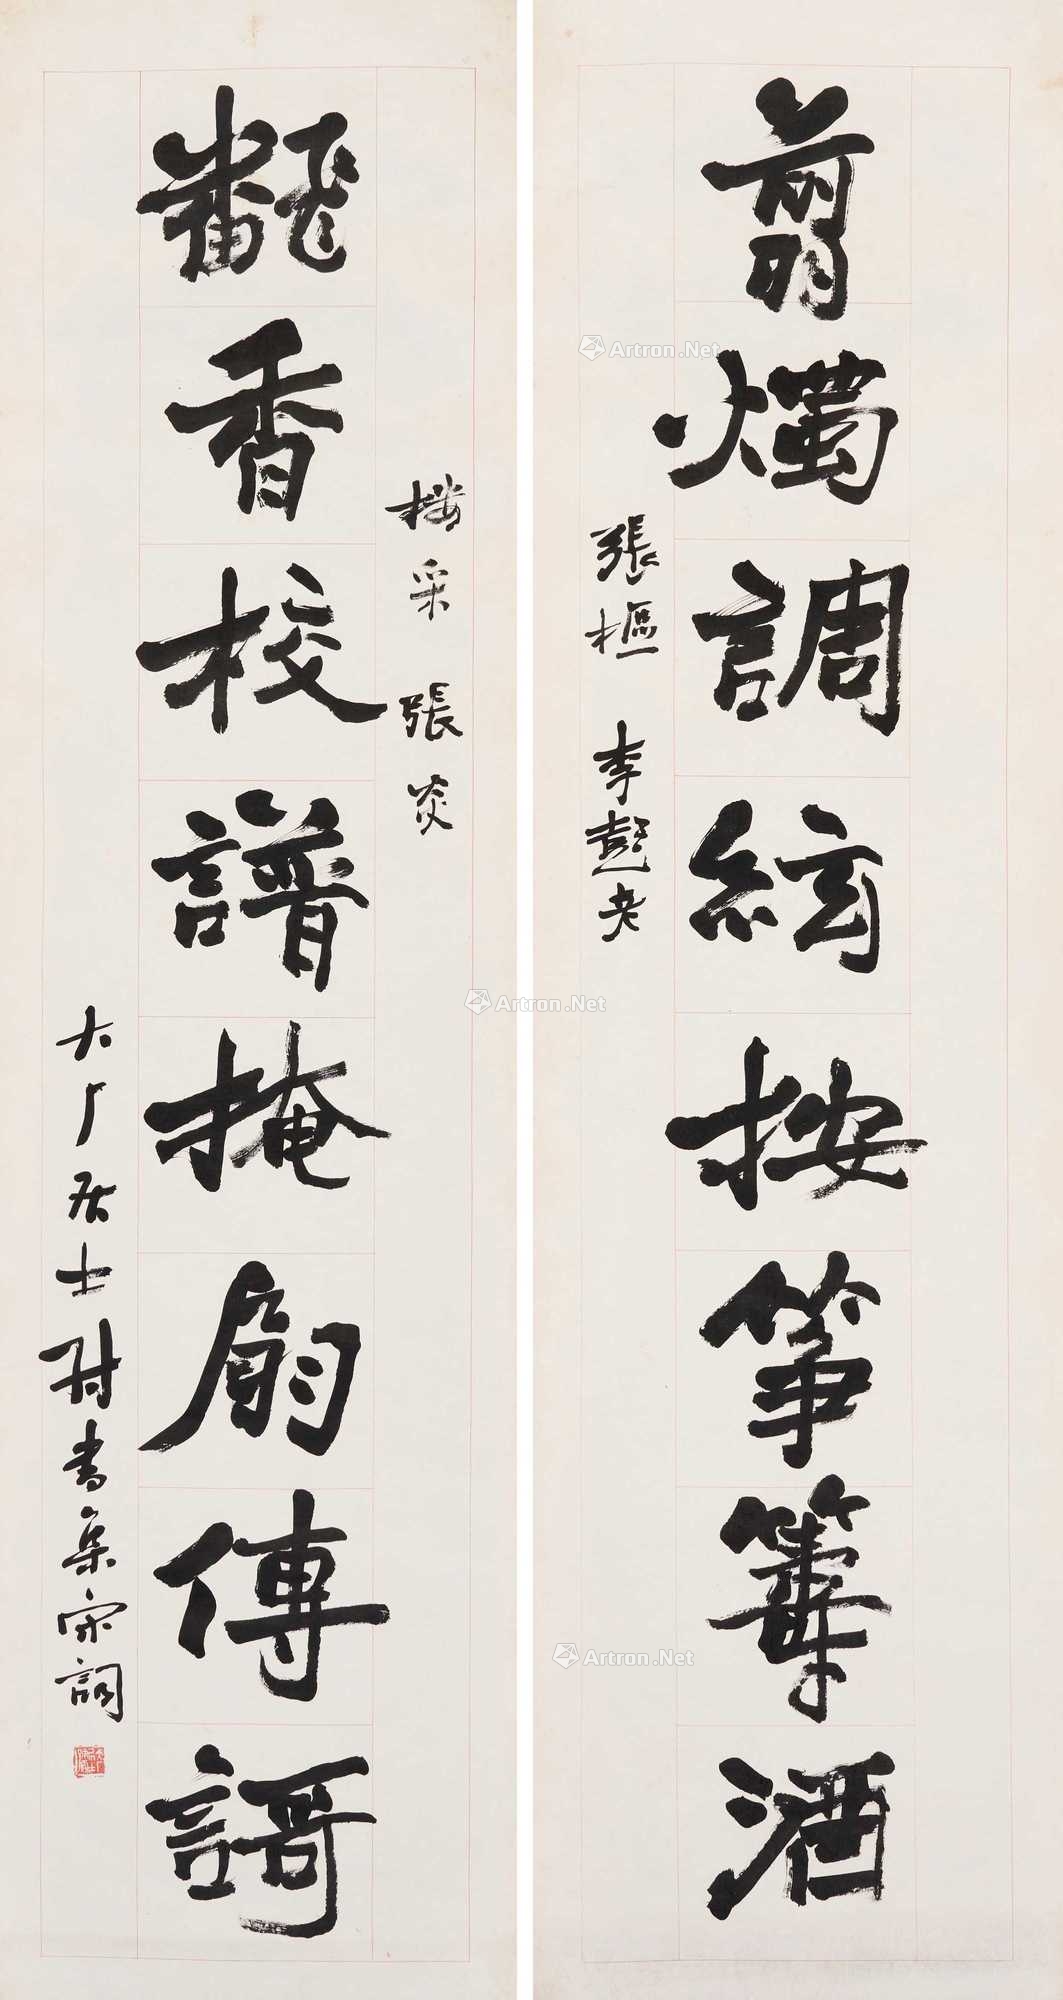 翦燭調絃按箏籌酒
張樞 李彭老
樓采 張炎
飜香校譜掩扇傳謌
大厂居士書集宋詞
Artron.Net
Artron.Net
Artron.Net